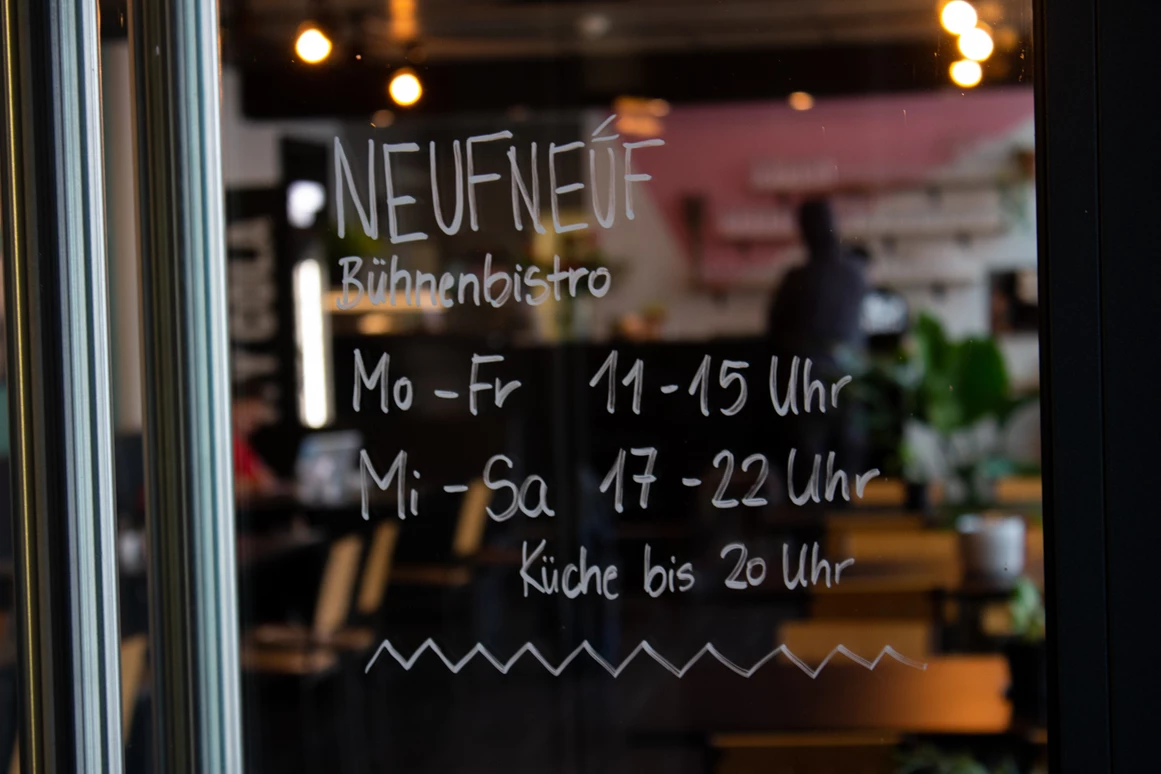 NEUFNEÚF
Bühnenbistro
Mo - Fr 11 - 15 Uhr
Mi - Sa 17 - 22 Uhr
Küche bis 20 Uhr